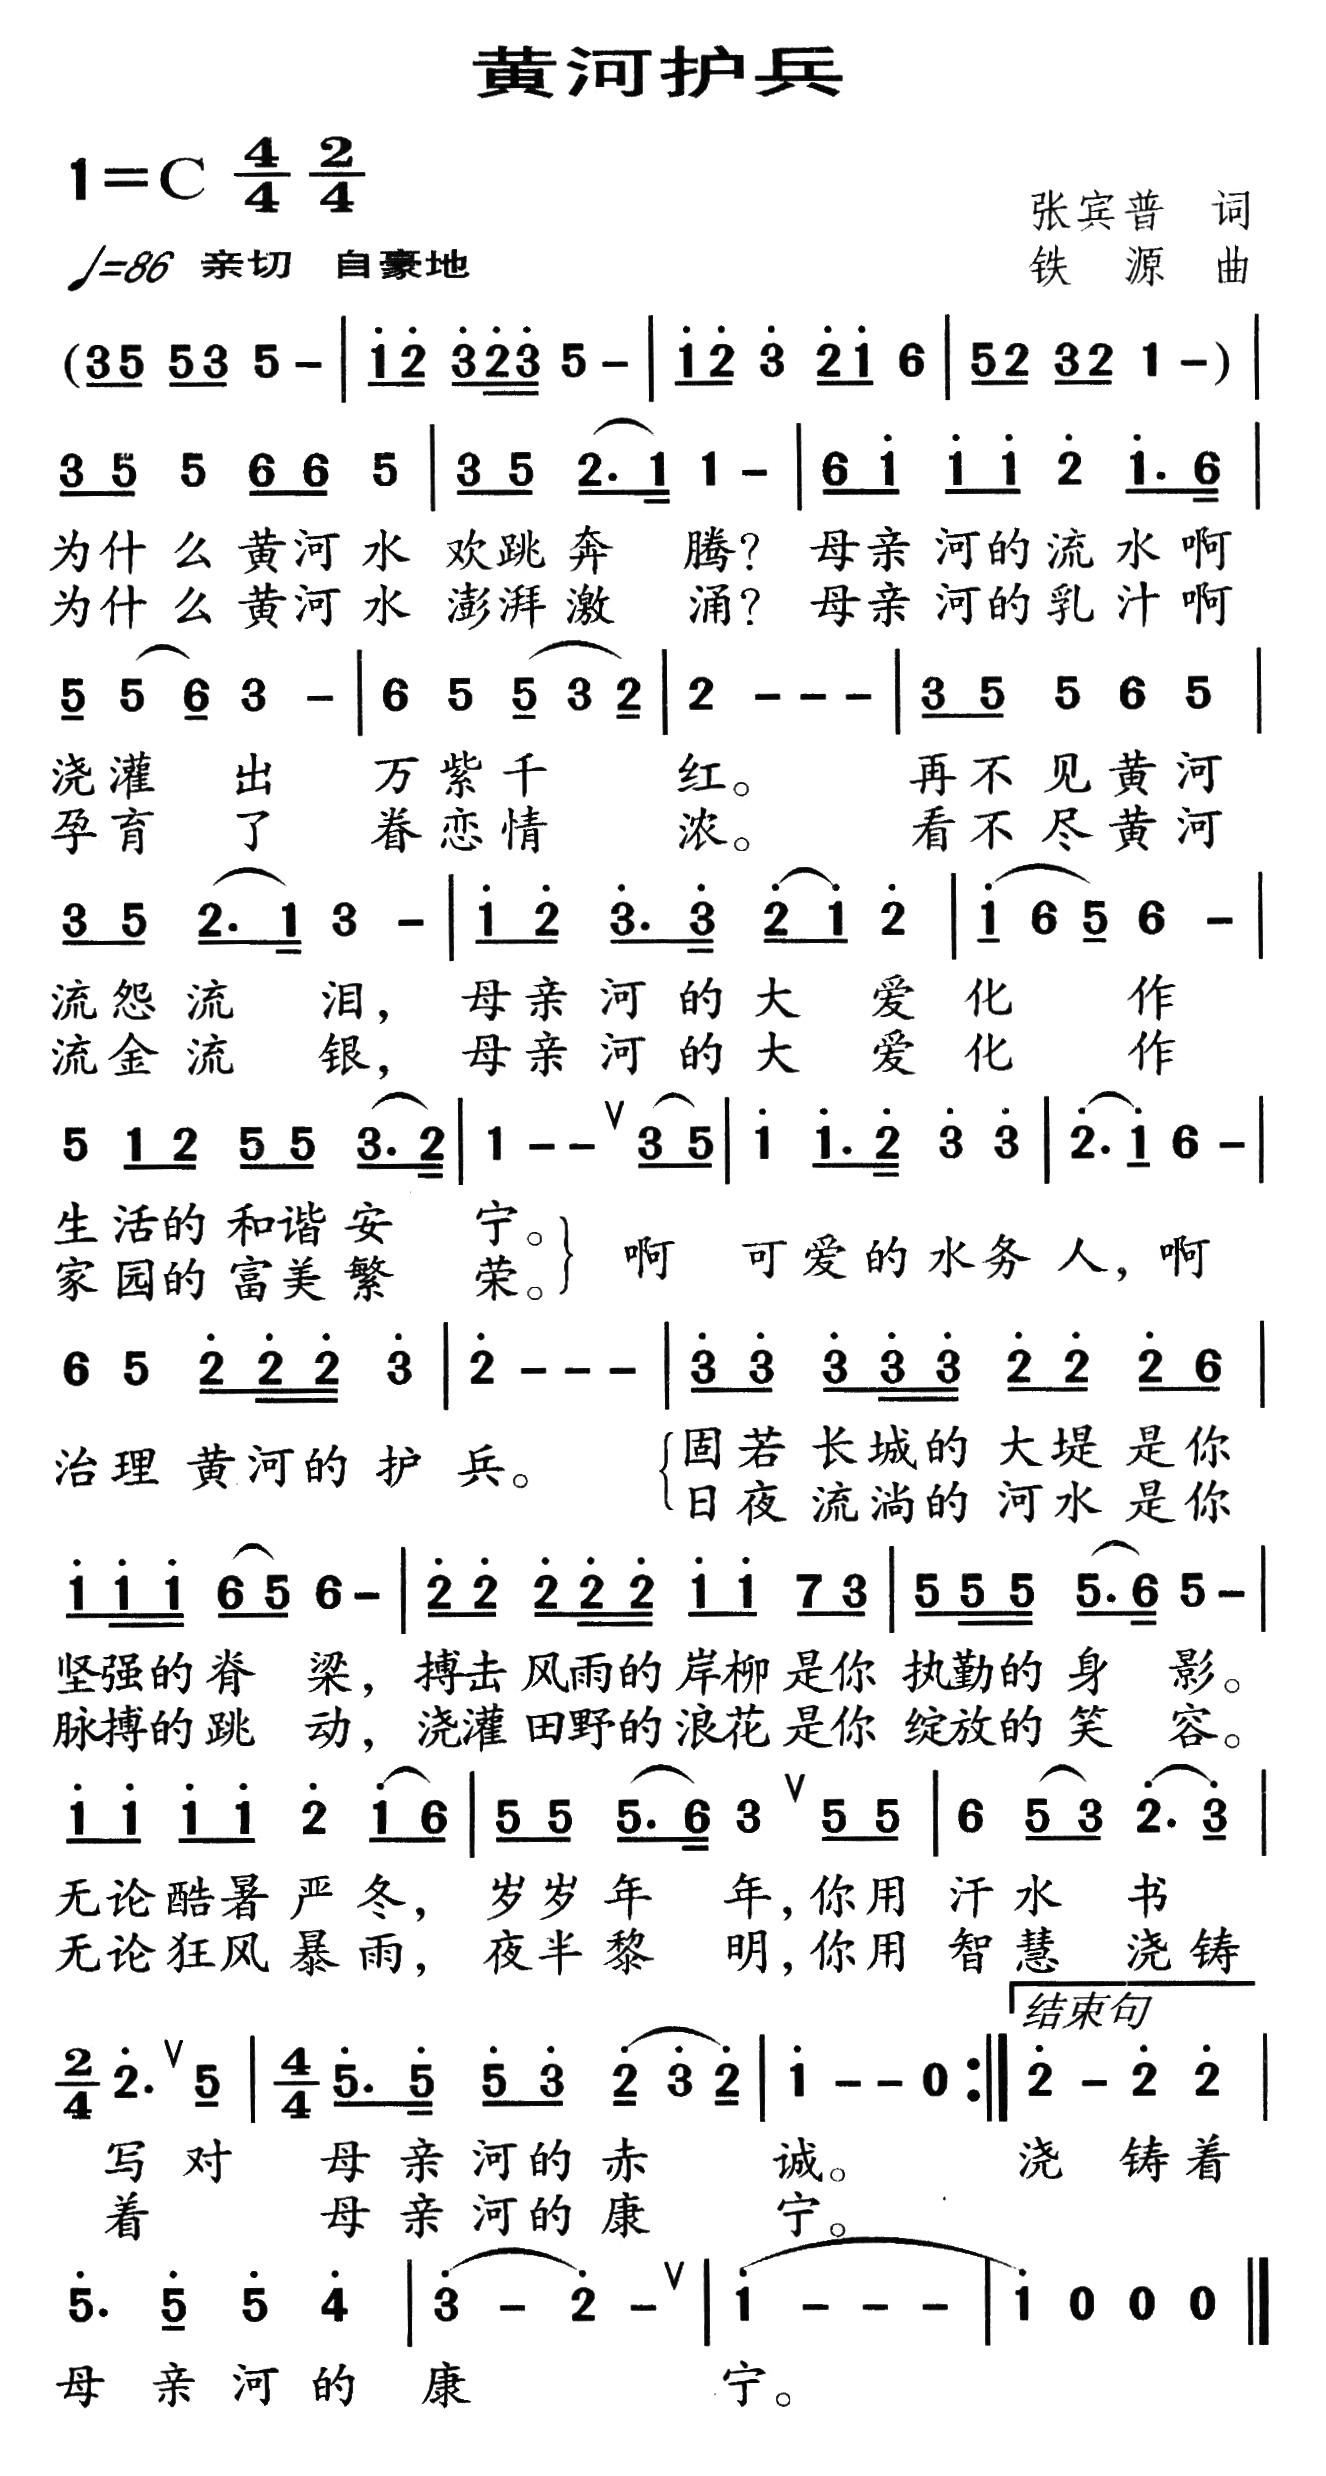 黄河护兵
1=C 4/4 2/4
张宾普 词
♩=86 亲切 自豪地
铁 源 曲
(35 53 5 - | i̇2̇ 3̇2̇3̇ 5 - | i̇2̇ 3̇ 2̇i̇ 6 | 52 32 1 - ) |
3 5 5 6 6 5 | 3 5 2. 1 1 - | 6 i̇ i̇ i̇ 2̇ i̇. 6 |
为什 么 黄河 水 欢跳 奔 腾? 母亲 河的 流 水 啊
为什 么 黄河 水 澎湃 激 涌? 母亲 河的 乳 汁 啊
5 5 6 3 - | 6 5 5 3 2 | 2 - - - | 3 5 5 6 5 |
浇 灌 出 万 紫 千 红。 再 不 见 黄 河
孕 育 了 眷 恋 情 浓。 看 不 尽 黄 河
3 5 2. 1 3 - | i̇ 2̇ 3̇. 3̇ 2̇ i̇ 2̇ | i̇ 6 5 6 - |
流 怨 流 泪, 母 亲 河 的 大 爱 化 作
流 金 流 银, 母 亲 河 的 大 爱 化 作
5 1 2 5 5 3. 2 | 1 - - ∨ 3 5 | i̇ i̇. 2̇ 3̇ 3̇ | 2̇. i̇ 6 - |
生 活的 和谐 安 宁。
啊 可 爱 的 水 务 人, 啊
家 园的 富美 繁 荣。
6 5 2̇ 2̇ 2̇ 3̇ | 2̇ - - - | 3̇ 3̇ 3̇ 3̇ 3̇ 2̇ 2̇ 2̇ 6 |
固 若 长 城 的 大 堤 是 你
治 理 黄 河 的 护 兵。
日 夜 流 淌 的 河 水 是 你
i̇ i̇ i̇ 6 5 6 - | 2̇ 2̇ 2̇ 2̇ 2̇ i̇ i̇ 7 3 | 5 5 5 5. 6 5 - |
坚强的 脊 梁, 搏击 风雨的 岸柳 是你 执勤的 身 影。
脉搏的 跳 动, 浇灌 田野的 浪花 是你 绽放的 笑 容。
i̇ i̇ i̇ i̇ 2̇ i̇ 6 | 5 5 5. 6 3 ∨ 5 5 | 6 5 3 2̇. 3̇ |
无论 酷暑 严 冬, 岁岁 年 年, 你用 汗 水 书
无论 狂风 暴 雨, 夜半 黎 明, 你用 智 慧 浇 铸
结束句
2/4 2̇. ∨ 5 | 4/4 5̇. 5̇ 5̇ 3̇ 2̇ 3̇ 2̇ | i̇ - - 0 :‖ 2̇ - 2̇ 2̇ |
写 对 母 亲 河 的 赤 诚。 浇 铸 着
着 母 亲 河 的 康 宁。
5̇. 5̇ 5̇ 4̇ | 3̇ - 2̇ - ∨ | i̇ - - - | i̇ 0 0 0 ‖
母 亲 河 的 康 宁。